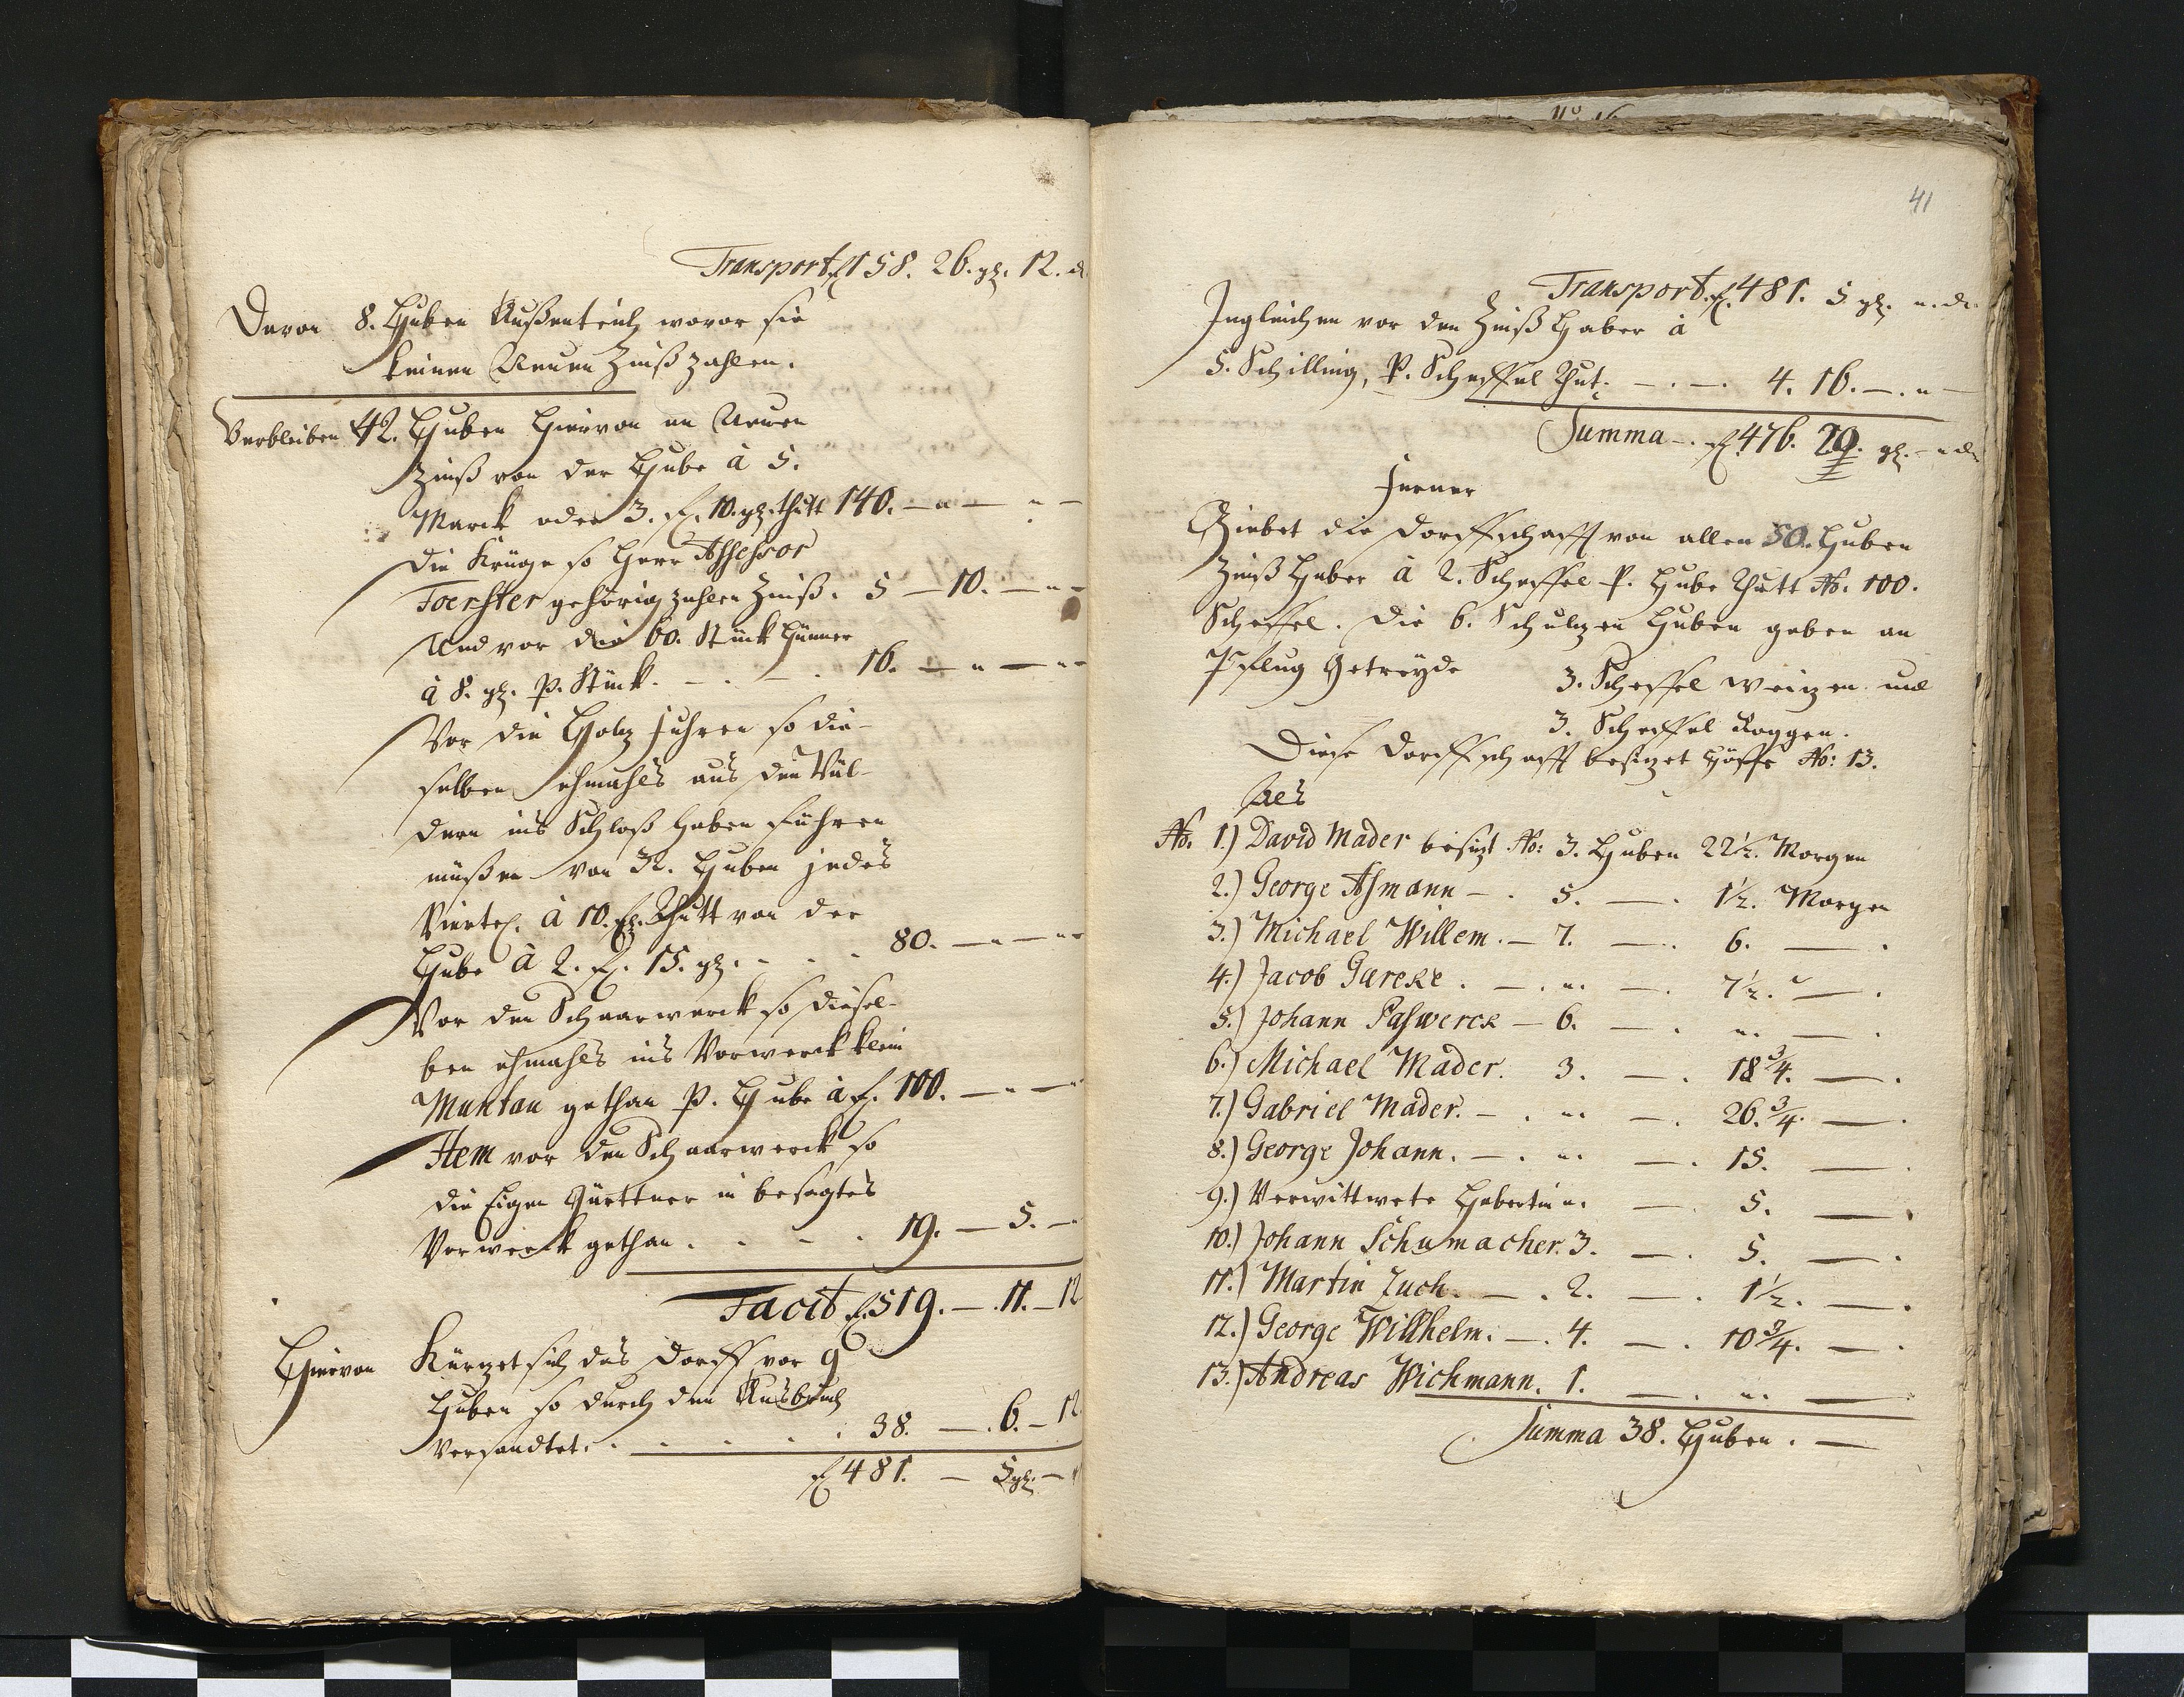 Transport fl 158. 26. gl. 12. d
Davon 8. Huben Außenteich wovor sie
keinen Neuen Zinß zahlen.
Verbleiben 42. Huben hiervon an Neuen
Zinß von der Hube à 5.
Marck oder 3. fl. 10. gl. thutt 140. — „ — „ —
Die Krüge so Herr Assessor
Foerster gehörig zahlen Zinß. 5 — 10. — „ —
Und vor die 60. Stück Hünner
à 8. gl. P. Stück. — . — . 16. — „ — „
Vor die Holz Fuhren so die-
selben ehmahls aus den Wäl-
dern ins Schloß haben führen
müßen von 32. Huben jedes
Viertel. à 10. fl. Thutt von der
Hube à 2. fl. 15. gl. - . - 80. — „ — „
Vor den Schaarwerck so diesel-
ben ehmahls ins Vorwerck klein
Muntau gethan P. Hube à fl. 100. — „ — „
Item vor den Schaarwerck so
die Eigen Gärttner in besagtes
Vorwerck gethan . . - . 19. — 5. —
Facit fl. 519. — 11. — 12
Hiervon Kürzet sich das Dorff vor 9
Huben so durch den Ausbruch
Versandtet. . . . . . 38. — . 6. — 12.
fl 481. — 5 gl. — „
41
Transport. fl. 481. 5 gl. „. d.
Ingleichen vor den Zinß Haber à
5. Schilling, P. Scheffel Thut. — . — . 4. 16. — . „ —
Summa — . fl. 476. 29. gl. - „ d.
Ferner
Giebet die Dorffschafft von allen 50. Huben
Zinß Haber à 2. Scheffel P. Hube Thutt No. 100.
Scheffel. Die 6. Schulzen Huben geben an
Pflug Getreyde 3. Scheffel Weizen und
3. Scheffel Roggen.
Diese Dorffschafft besitzet Höffe No: 13.
Als
No. 1.) David Mader besitzt No: 3. Huben 22½. Morgen
2.) George Asmann — . 5. — . 1½. Morgen
3.) Michael Willem. — 7. — . 6. — .
4.) Jacob Gareke . — . „. — . 7½. — .
5.) Johann Paswerck — 6. — . „. — .
6.) Michael Mader. 3. — . 18¾. — .
7.) Gabriel Mader. — . „. — . 26.¾. — .
8.) George Johann. — . „. — . 15. — .
9.) Verwittwete Habertin „. — . 5. — .
10.) Johann Schumacher. 3. — . 5. — .
11.) Martin Zuch. — . 2. — . 1½. — .
12.) George Willhelm. — . 4. — . 10¾. — .
13.) Andreas Wichmann. 1. — . „. —
Summa 38. Huben . —